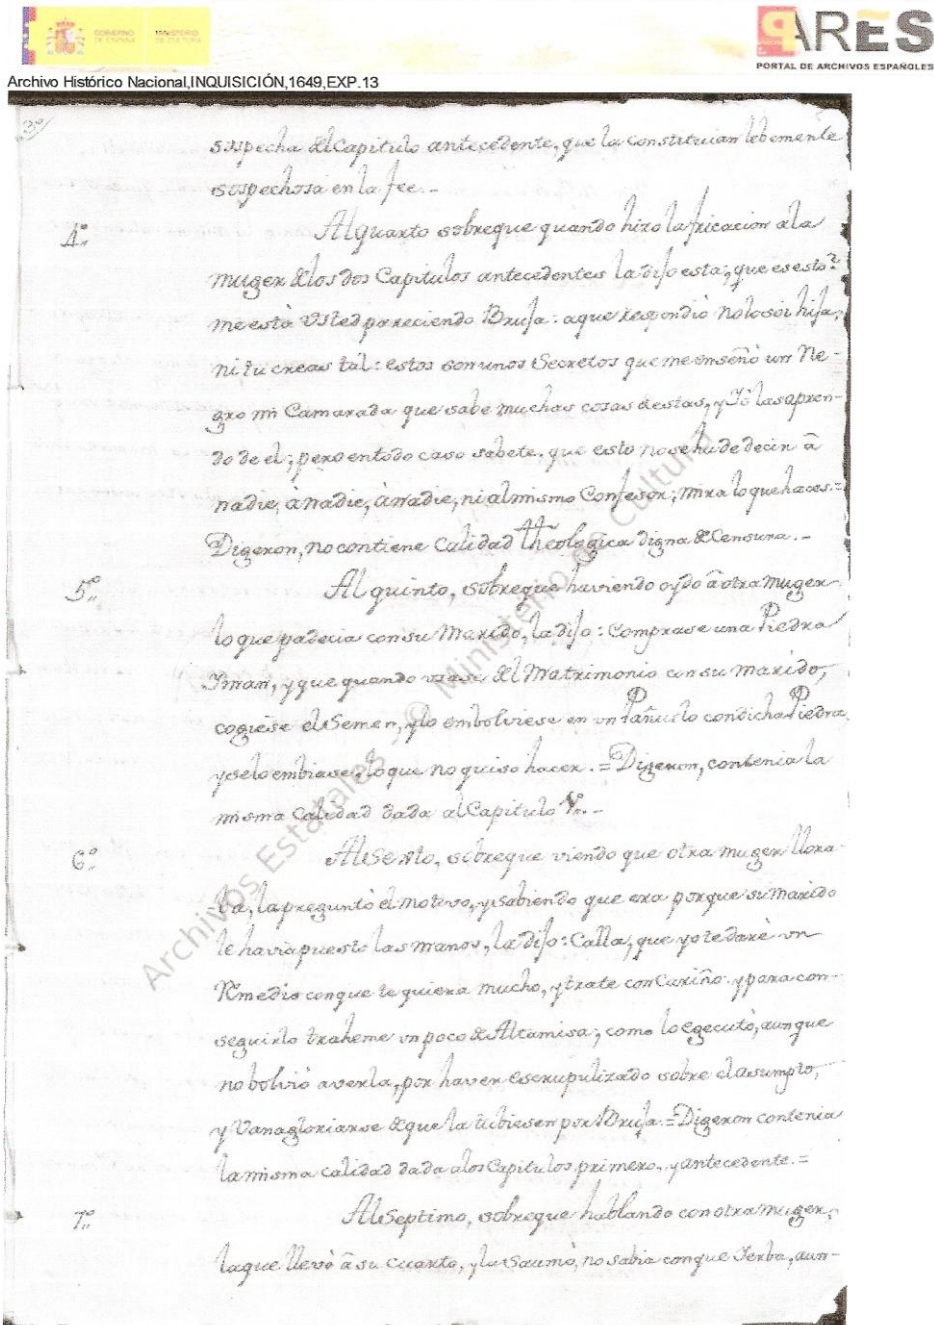 GOBIERNO DE ESPAÑA
MINISTERIO DE CULTURA
PARES
PORTAL DE ARCHIVOS ESPAÑOLES
Archivo Histórico Nacional,INQUISICIÓN,1649,EXP.13
sospecha del Capitulo antecedente, que la constituian lebemente
sospechosa en la fee.-
4º Al quarto sobre que quando hizo la fricacion a la
muger de los dos Capitulos antecedentes la dijo esta; que es esto?
me està Usted pareciendo Bruja: a que respondiò no lo soi hija,
ni tu creas tal: estos son unos Secretos que me enseñò un Ne-
gro mi Camarada que sabe muchas cosas destas, y Yò las apren-
do de el; pero en todo caso sabete, que esto no se ha de decir â
nadie, à nadie, à nadie, ni al mismo Confesor; mira lo que haces.=
Digeron, no contiene Calidad theologica digna de Censura.-
5º Al quinto, sobre que haviendo oydo â otra muger
lo que padecia con su Marido, la dijo: Comprase una Piedra
Yman, y que quando usase del Matrimonio con su marido,
cogiese el Semen, y lo embolviese en un Pañuelo con dicha Piedra,
y se lo embiase, lo que no quiso hacer.=Digeron, contenia la
misma Calidad dada al Capitulo 1º.-
6º Al Sexto, sobre que viendo que otra muger llora-
-ba, la preguntò el motivo, y sabiendo que era porque su marido
le havia puesto las manos, la dijo: Calla, que yo te darè un
Remedio con que te quiera mucho, y trate con Cariño y para con-
seguirlo traheme un poco de Altamisa; como lo egecutò, aunque
no bolviò a verla, por haver escrupulizado sobre el asumpto,
y Vanagloriarse de que la tubiesen por Bruja.=Digeron contenia
la misma calidad dada a los Capitulos primero, y antecedente.=
7º Al Septimo, sobre que hablando con otra muger,
la que llevò â su cuarto, y la Saumò, no sabia con que Yerba, aun-
Archivos Estatales © Ministerio de Cultura